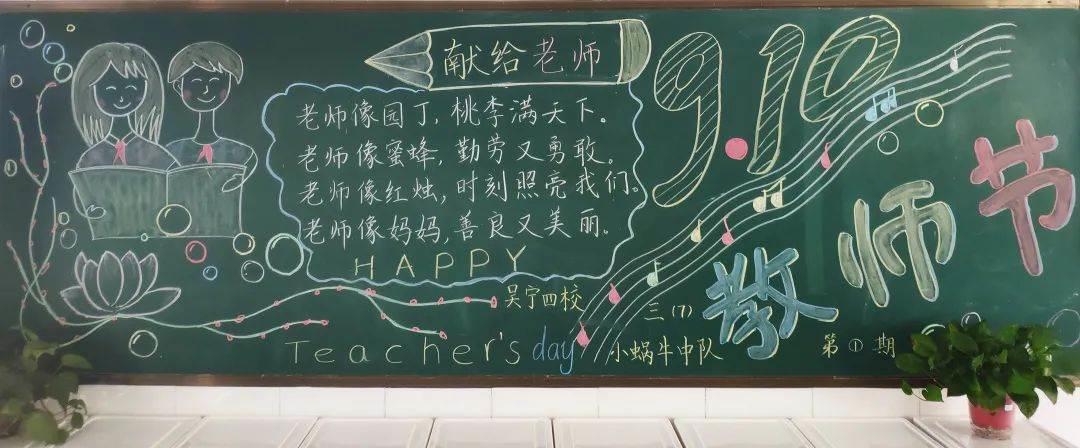 献给老师
老师像园丁,桃李满天下。
老师像蜜蜂,勤劳又勇敢。
老师像红烛,时刻照亮我们。
老师像妈妈,善良又美丽。
HAPPY
Teacher's day
9.10
教师节
吴宁四校
三(7)
小蜗牛中队
第①期